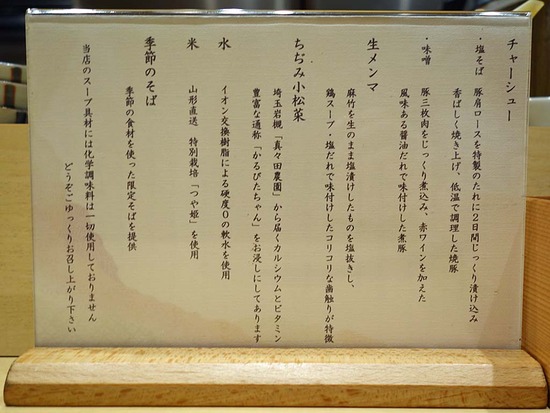 チャーシュー
・塩そば 豚肩ロースを特製のたれに２日間じっくり漬け込み
香ばしく焼き上げ、低温で調理した焼豚
・味噌 豚三枚肉をじっくり煮込み、赤ワインを加えた
風味ある醤油だれで味付けした煮豚
生メンマ
麻竹を生のまま塩漬けしたものを塩抜きし、
鶏スープ・塩だれで味付けしたコリコリな歯触りが特徴
ちぢみ小松菜
埼玉岩槻「真々田農園」から届くカルシウムとビタミン
豊富な通称「かるびたちゃん」をお浸しにしてあります
水 イオン交換樹脂による硬度０の軟水を使用
米 山形直送 特別栽培「つや姫」を使用
季節のそば
季節の食材を使った限定そばを提供
当店のスープ具材には化学調味料は一切使用しておりません
どうぞごゆっくりお召し上がり下さい